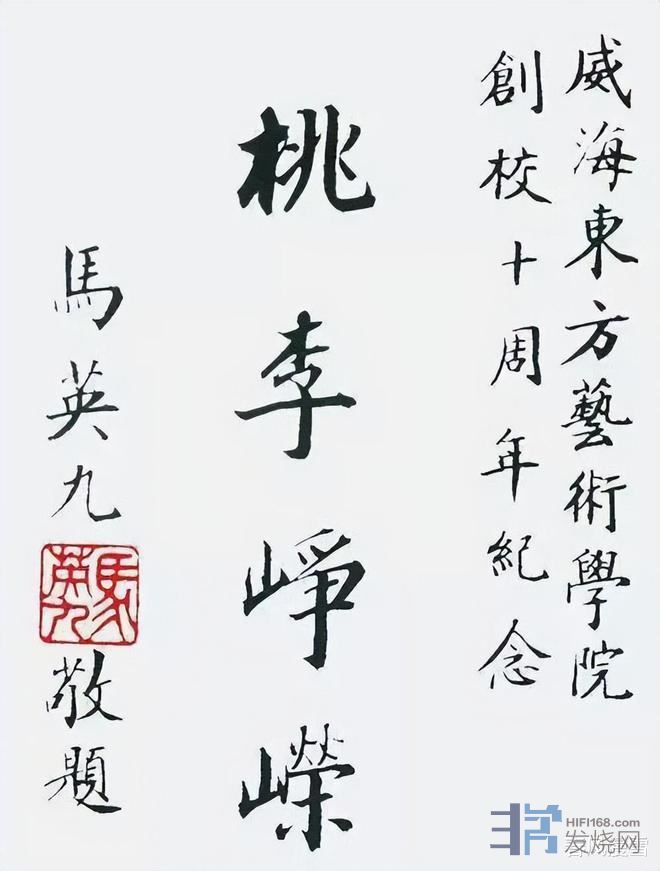 威海東方藝術學院
創校十周年紀念
桃李崢嶸
馬英九
馬英九
敬題
HIFI168.com
发烧网